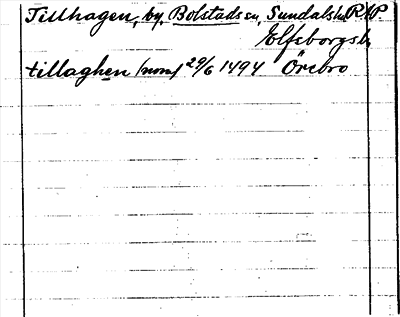 Tillhagen, by, Bolstads sn, Sundals hd, R.A.P.
Elfsborgs l.
tillaghen (nom) 29/6 1494 Örebro